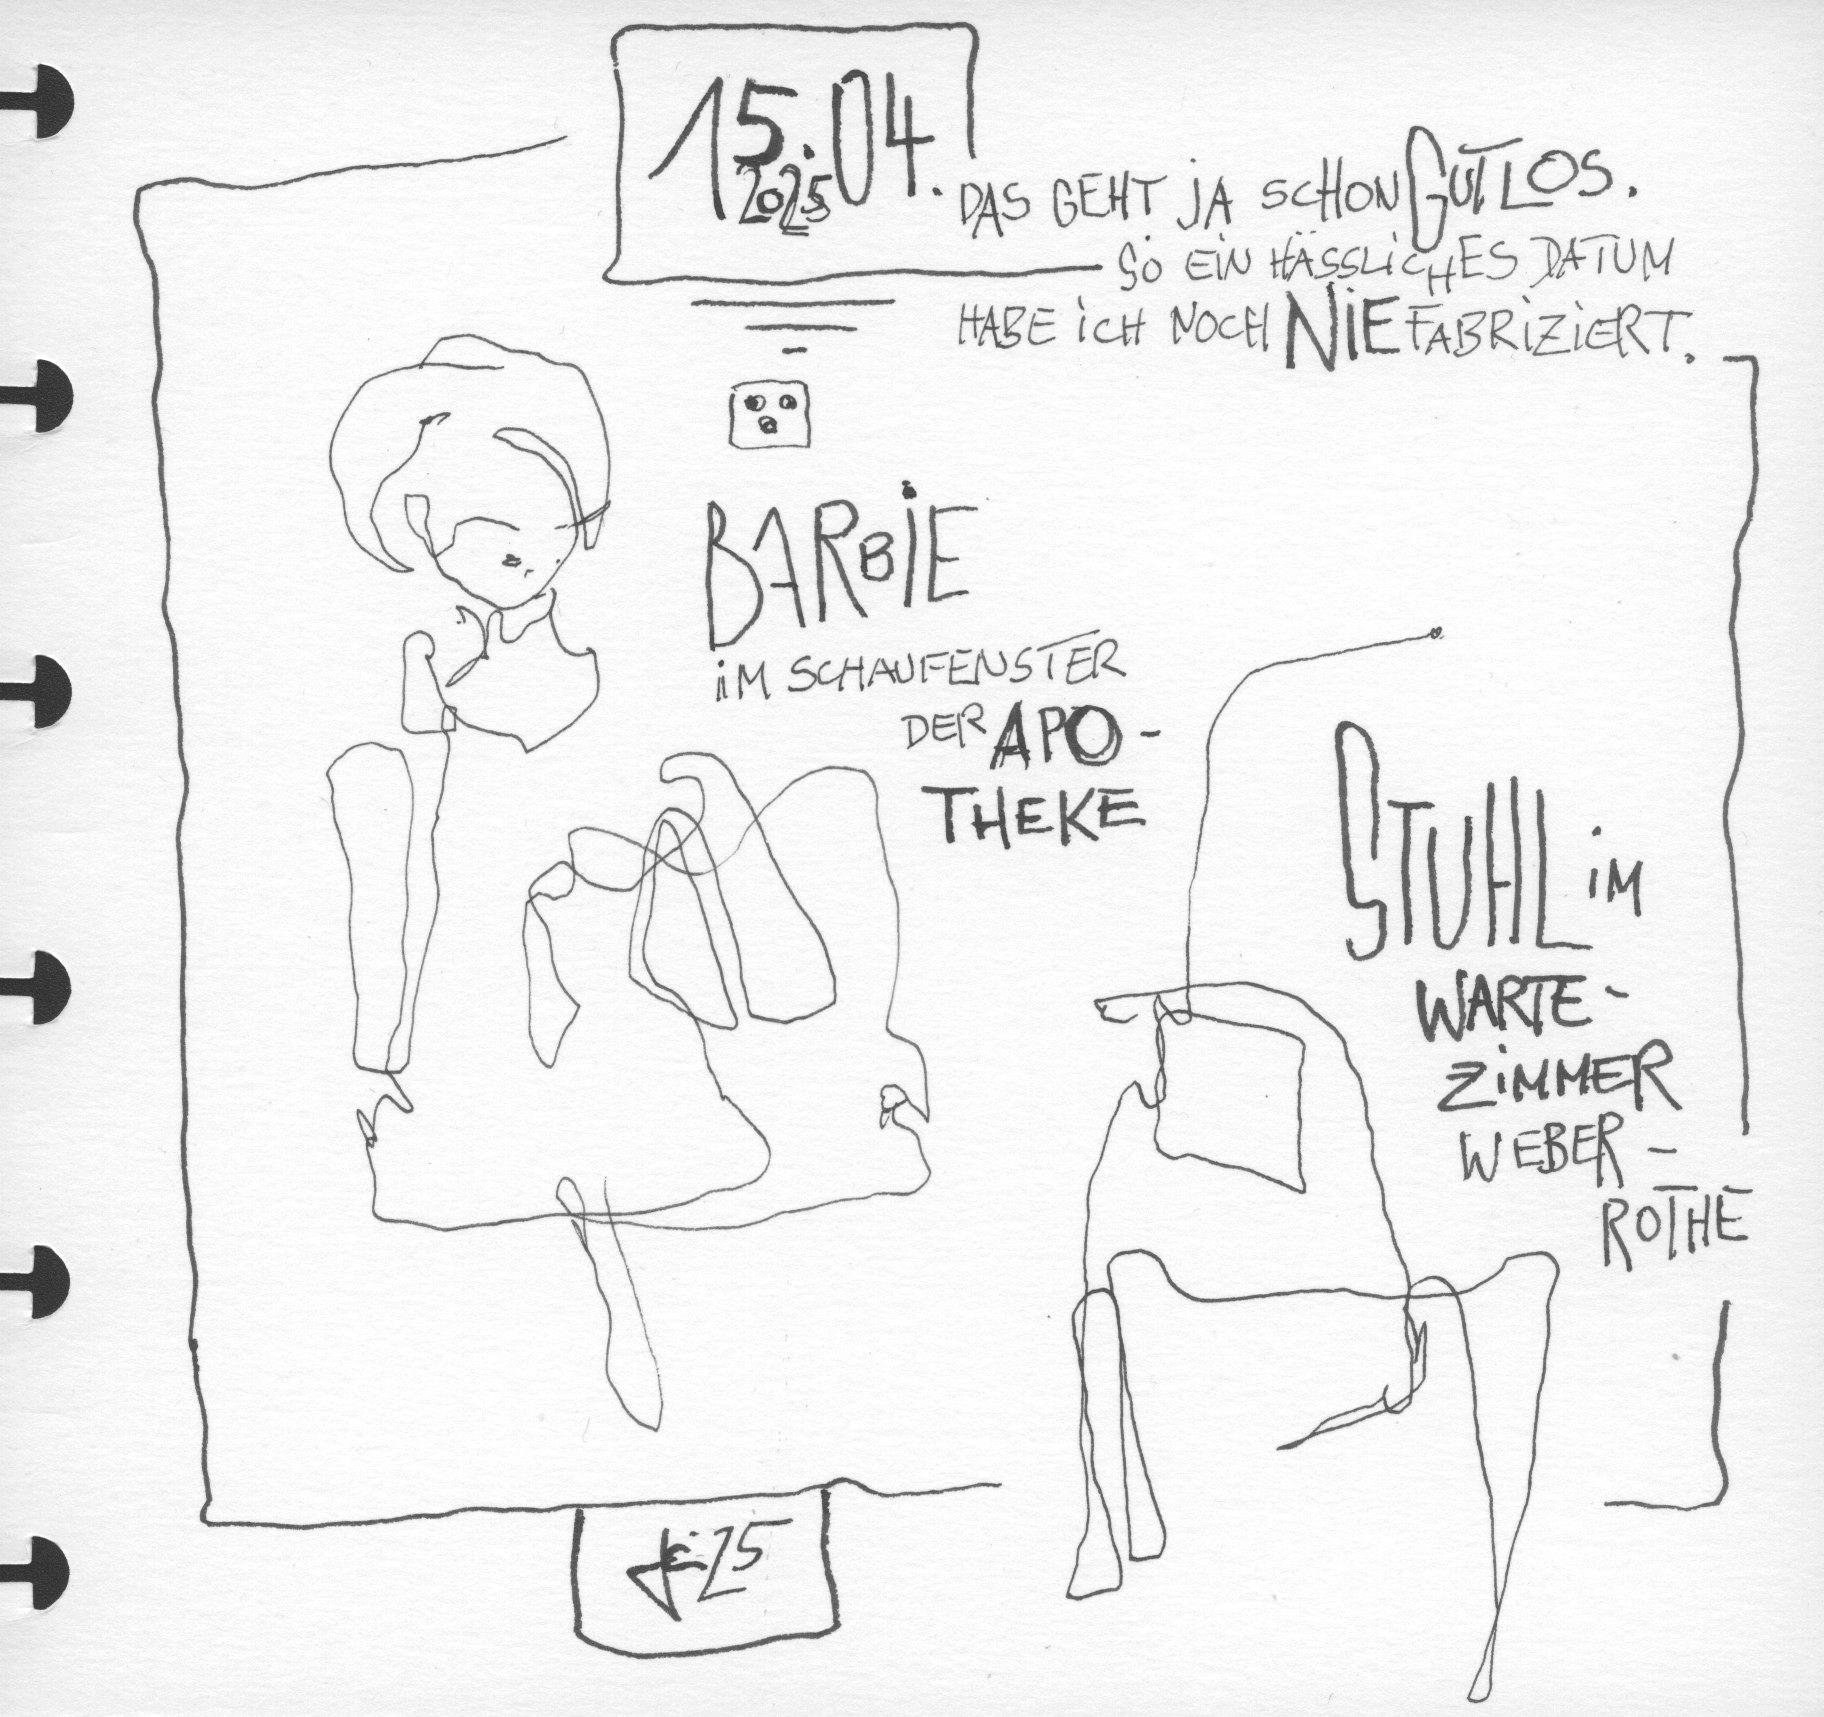 15.04.
2025
DAS GEHT JA SCHON GUT LOS.
SO EIN HÄSSLICHES DATUM
HABE ICH NOCH NIE FABRIZIERT.
BARBIE
IM SCHAUFENSTER
DER APO-
THEKE
STUHL IM
WARTE-
ZIMMER
WEBER-
ROTHE
25